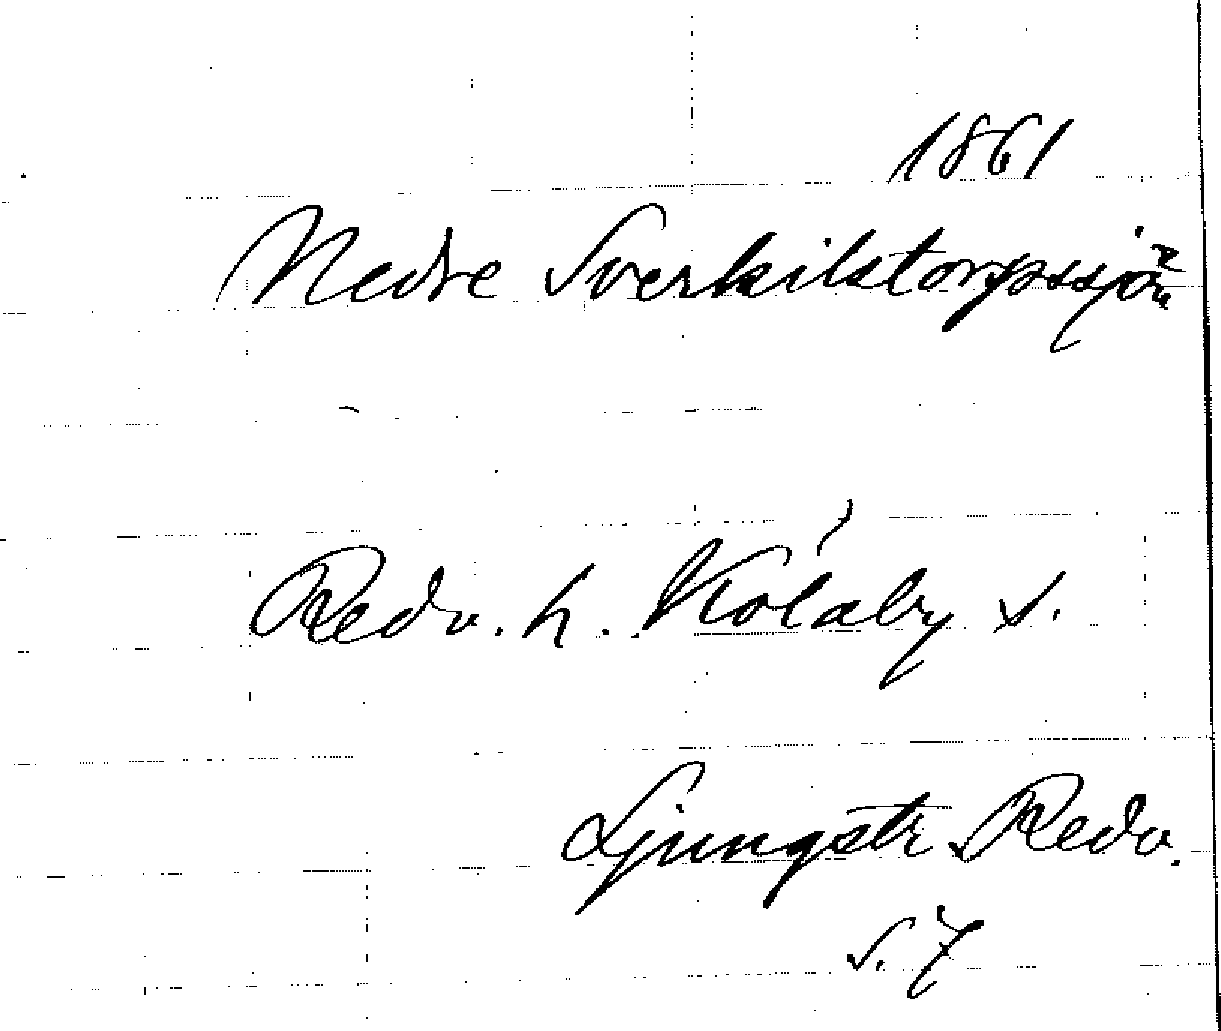 1861
Nedre Sverkilstorpssjön
Redv. h. Kölaby s.
Ljungstr. Redv.
s. 7